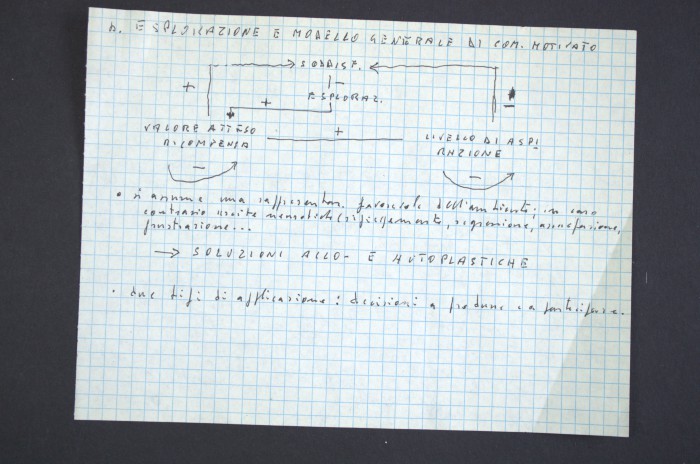 b. ESPLORAZIONE E MODELLO GENERALE DI COM. MOTIVATO
SODDISF.
+ - -
ESPLORAZ.
+
VALORE ATTESO + LIVELLO DI ASPI
RICOMPENSA RAZIONE
- -
• si assume una rappresentaz. favorevole dell'ambiente; in caso
contrario uscite nevrotiche (ripiegamento, regressione, assuefazione,
frustrazione...
→ SOLUZIONI ALLO- E AUTOPLASTICHE
• due tipi di applicazione: decisioni a produrre e a partecipare.